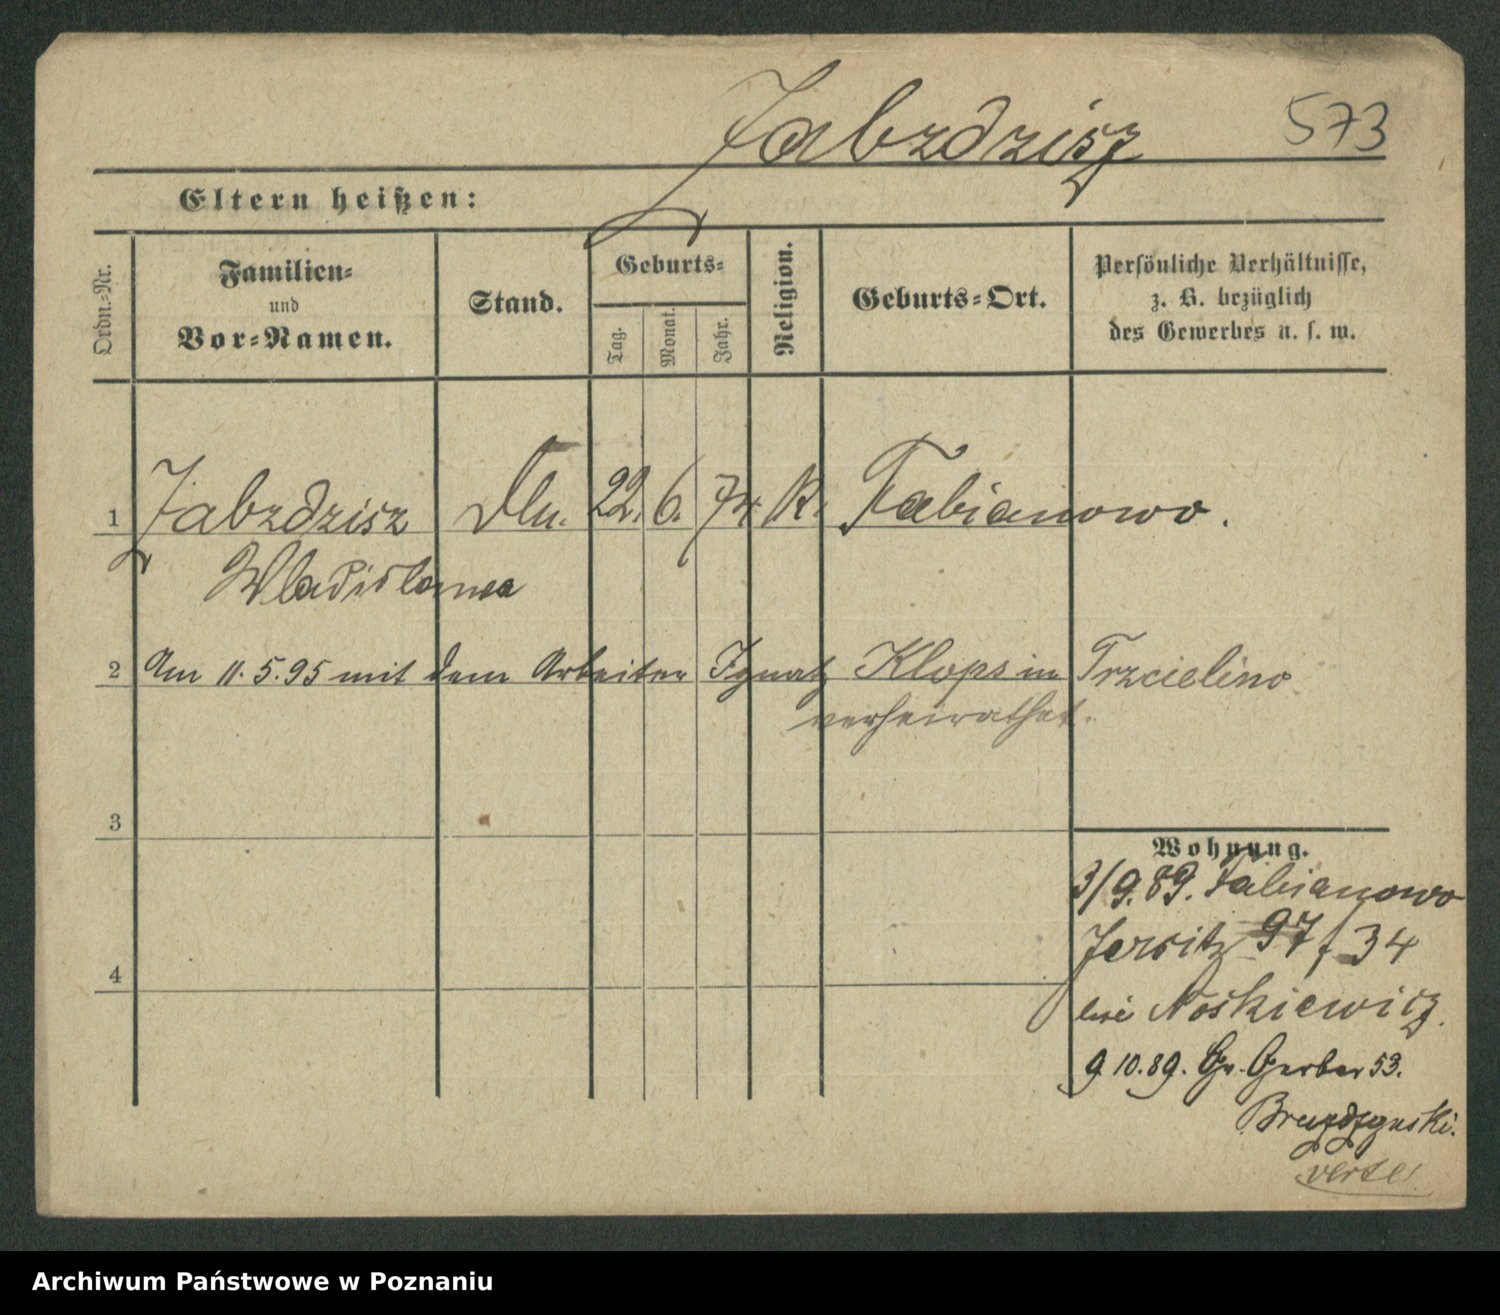 Jabzdzisz 573
Eltern heißen:
Ordn.-Nr.
Familien-
und
Vor-Namen.
Stand.
Geburts-
Tag.
Monat.
Jahr.
Religion.
Geburts-Ort.
Persönliche Verhältnisse,
z. B. bezüglich
des Gewerbes u. s. w.
1 Jabzdzisz 22. 6. 74 K. Fabianowo.
Wladislawa
2 Am 11.5.95 mit dem Arbeiter Ignatz Klops in Trzcielino
verheirathet.
3
4
Wohnung.
3/9.89. Fabianowo
Jersitz 97 / 34
bei Noskiewicz.
9.10.89. Gr. Gerber 53.
Bruzdzynski.
verte!
Archiwum Państwowe w Poznaniu